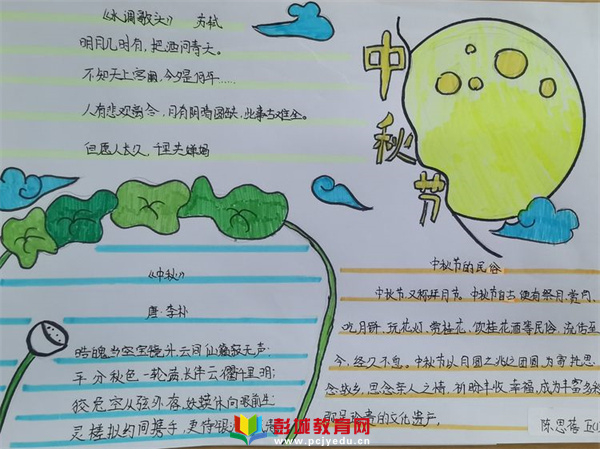 《水调歌头》 苏轼
明月几时有，把酒问青天。
不知天上宫阙，今夕是何年……
人有悲欢离合，月有阴晴圆缺，此事古难全。
但愿人长久，千里共婵娟
中秋节
《中秋》
唐·李朴
皓魄当空宝镜升，云间仙籁寂无声；
平分秋色一轮满，长伴云衢千里明；
狡兔空从弦外落，妖蟆休向眼前生；
灵槎拟约间携手，更待银
中秋节的民俗
中秋节又称拜月节。中秋节自古便有祭月、赏月、
吃月饼、玩花灯、赏桂花、饮桂花酒等民俗，流传至
今，经久不息。中秋节以月圆之兆人之团圆，为寄托思
念故乡，思念亲人之情，祈盼丰收、幸福，成为丰富多彩
珍贵的文化遗产。
陈思蓓
彭城教育网
www.pcjyedu.cn